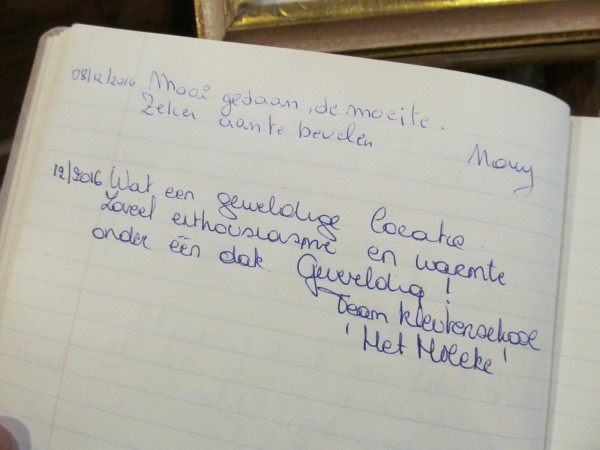 08/12/2016 Mooi gedaan, de moeite.
Zeker aan te bevelen
12/2016 Wat een geweldige locatie.
Zoveel enthousiasme en warmte
onder één dak. Geweldig!
Team kleuterschool
'Het Moleke'